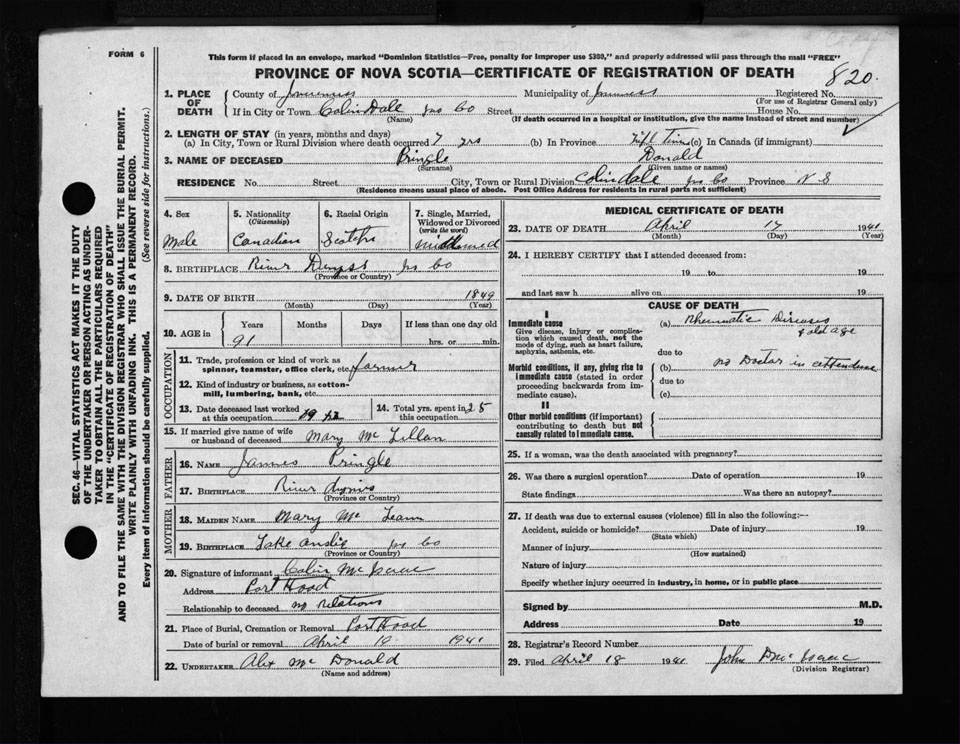 FORM 6
This form if placed in an envelope, marked "Dominion Statistics—Free, penalty for improper use $300," and properly addressed will pass through the mail "FREE"
PROVINCE OF NOVA SCOTIA—CERTIFICATE OF REGISTRATION OF DEATH
820.
1. PLACE OF DEATH
County of Municipality of Registered No.
(For use of Registrar General only)
If in City or Town Colindale Co Street House No.
(Name) (If death occurred in a hospital or institution, give the name instead of street and number)
2. LENGTH OF STAY (in years, months and days)
(a) In City, Town or Rural Division where death occurred 7 yrs (b) In Province Life Time (c) In Canada (if immigrant)
3. NAME OF DECEASED Pringle Donald
(Surname) (Given name or names)
RESIDENCE No. Street City, Town or Rural Division Colindale Co Province N S
(Residence means usual place of abode. Post Office Address for residents in rural parts not sufficient)
4. Sex
Male
5. Nationality (Citizenship)
Canadian
6. Racial Origin
Scotch
7. Single, Married, Widowed or Divorced (write the word)
8. BIRTHPLACE River Co
(Province or Country)
9. DATE OF BIRTH 1849
(Month) (Day) (Year)
10. AGE in
Years Months Days If less than one day old
91 hrs. or min.
OCCUPATION
11. Trade, profession or kind of work as spinner, teamster, office clerk, etc. farmer
12. Kind of industry or business, as cotton-mill, lumbering, bank, etc.
13. Date deceased last worked at this occupation 19
14. Total yrs. spent in this occupation 25
15. If married give name of wife or husband of deceased Mary Mc Lellan
FATHER
16. NAME James Pringle
17. BIRTHPLACE River
(Province or Country)
MOTHER
18. MAIDEN NAME Mary Mc Lean
19. BIRTHPLACE Lake Co
(Province or Country)
20. Signature of informant Colin Mc Isaac
Address Port Hood
Relationship to deceased no relations
21. Place of Burial, Cremation or Removal Port Hood
Date of burial or removal April 19 1941
22. UNDERTAKER Alex Mc Donald
(Name and address)
MEDICAL CERTIFICATE OF DEATH
23. DATE OF DEATH April 17 1941
(Month) (Day) (Year)
24. I HEREBY CERTIFY that I attended deceased from:
19 to 19
and last saw h alive on 19
CAUSE OF DEATH
I
Immediate cause
Give disease, injury or complication which caused death, not the mode of dying, such as heart failure, asphyxia, asthenia, etc.
(a) Rheumatic Diseases
& old age
due to
Morbid conditions, if any, giving rise to immediate cause (stated in order proceeding backwards from immediate cause).
(b) no Doctor in attendance
due to
(c)
II
Other morbid conditions (if important) contributing to death but not causally related to immediate cause.
25. If a woman, was the death associated with pregnancy?
26. Was there a surgical operation? Date of operation 19
State findings Was there an autopsy?
27. If death was due to external causes (violence) fill in also the following:—
Accident, suicide or homicide? Date of injury 19
(State which)
Manner of injury
(How sustained)
Nature of injury
Specify whether injury occurred in industry, in home, or in public place
Signed by M.D.
Address Date 19
28. Registrar's Record Number
29. Filed April 18 1941 John D Mc Isaac
(Division Registrar)
SEC. 46—VITAL STATISTICS ACT MAKES IT THE DUTY
OF THE UNDERTAKER OR PERSON ACTING AS UNDER-
TAKER TO OBTAIN ALL THE PARTICULARS REQUIRED
IN THE "CERTIFICATE OF REGISTRATION OF DEATH"
AND TO FILE THE SAME WITH THE DIVISION REGISTRAR WHO SHALL ISSUE THE BURIAL PERMIT.
WRITE PLAINLY WITH UNFADING INK. THIS IS A PERMANENT RECORD.
Every item of information should be carefully supplied. (See reverse side for instructions.)